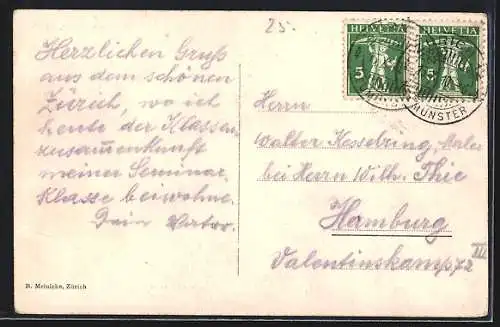 25.
HELVETIA
5
HELVETIA
5
MÜNSTER
Herzlichen Gruß
aus dem schönen
Zürich, wo ich
heute der Klassen-
zusammenkunft
meiner Seminar-
klasse beiwohne.
Dein
Herrn
Walter Kesselring, Maler
bei Herrn Wilh. Thie
Hamburg
Valentinskamp 72 III
Zürich